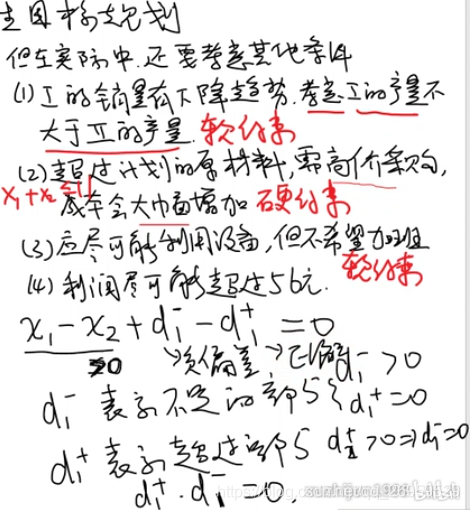 生目标规划
但在实际中.还要考虑其他条件
(1) I的销量有下降趋势.考虑I的产量不
大于II的产量. 软约束
(2) 超过计划的原材料,需高价采购,
x₁+x₂
成本会大巾畐增加 硬约束
(3) 应尽可能利用设备,但不希望加班
软约束
(4) 利润尽可能超过56元.
x₁-x₂+d₁⁻-d₁⁺=0
负偏差 正偏 d₁⁻>0
d₁⁻ 表示不足的部分 d₁⁺=0
d₁⁺ 表示超过部分 d₁⁺>0⇒d₁⁻=0
d₁⁺·d₁⁻=0.